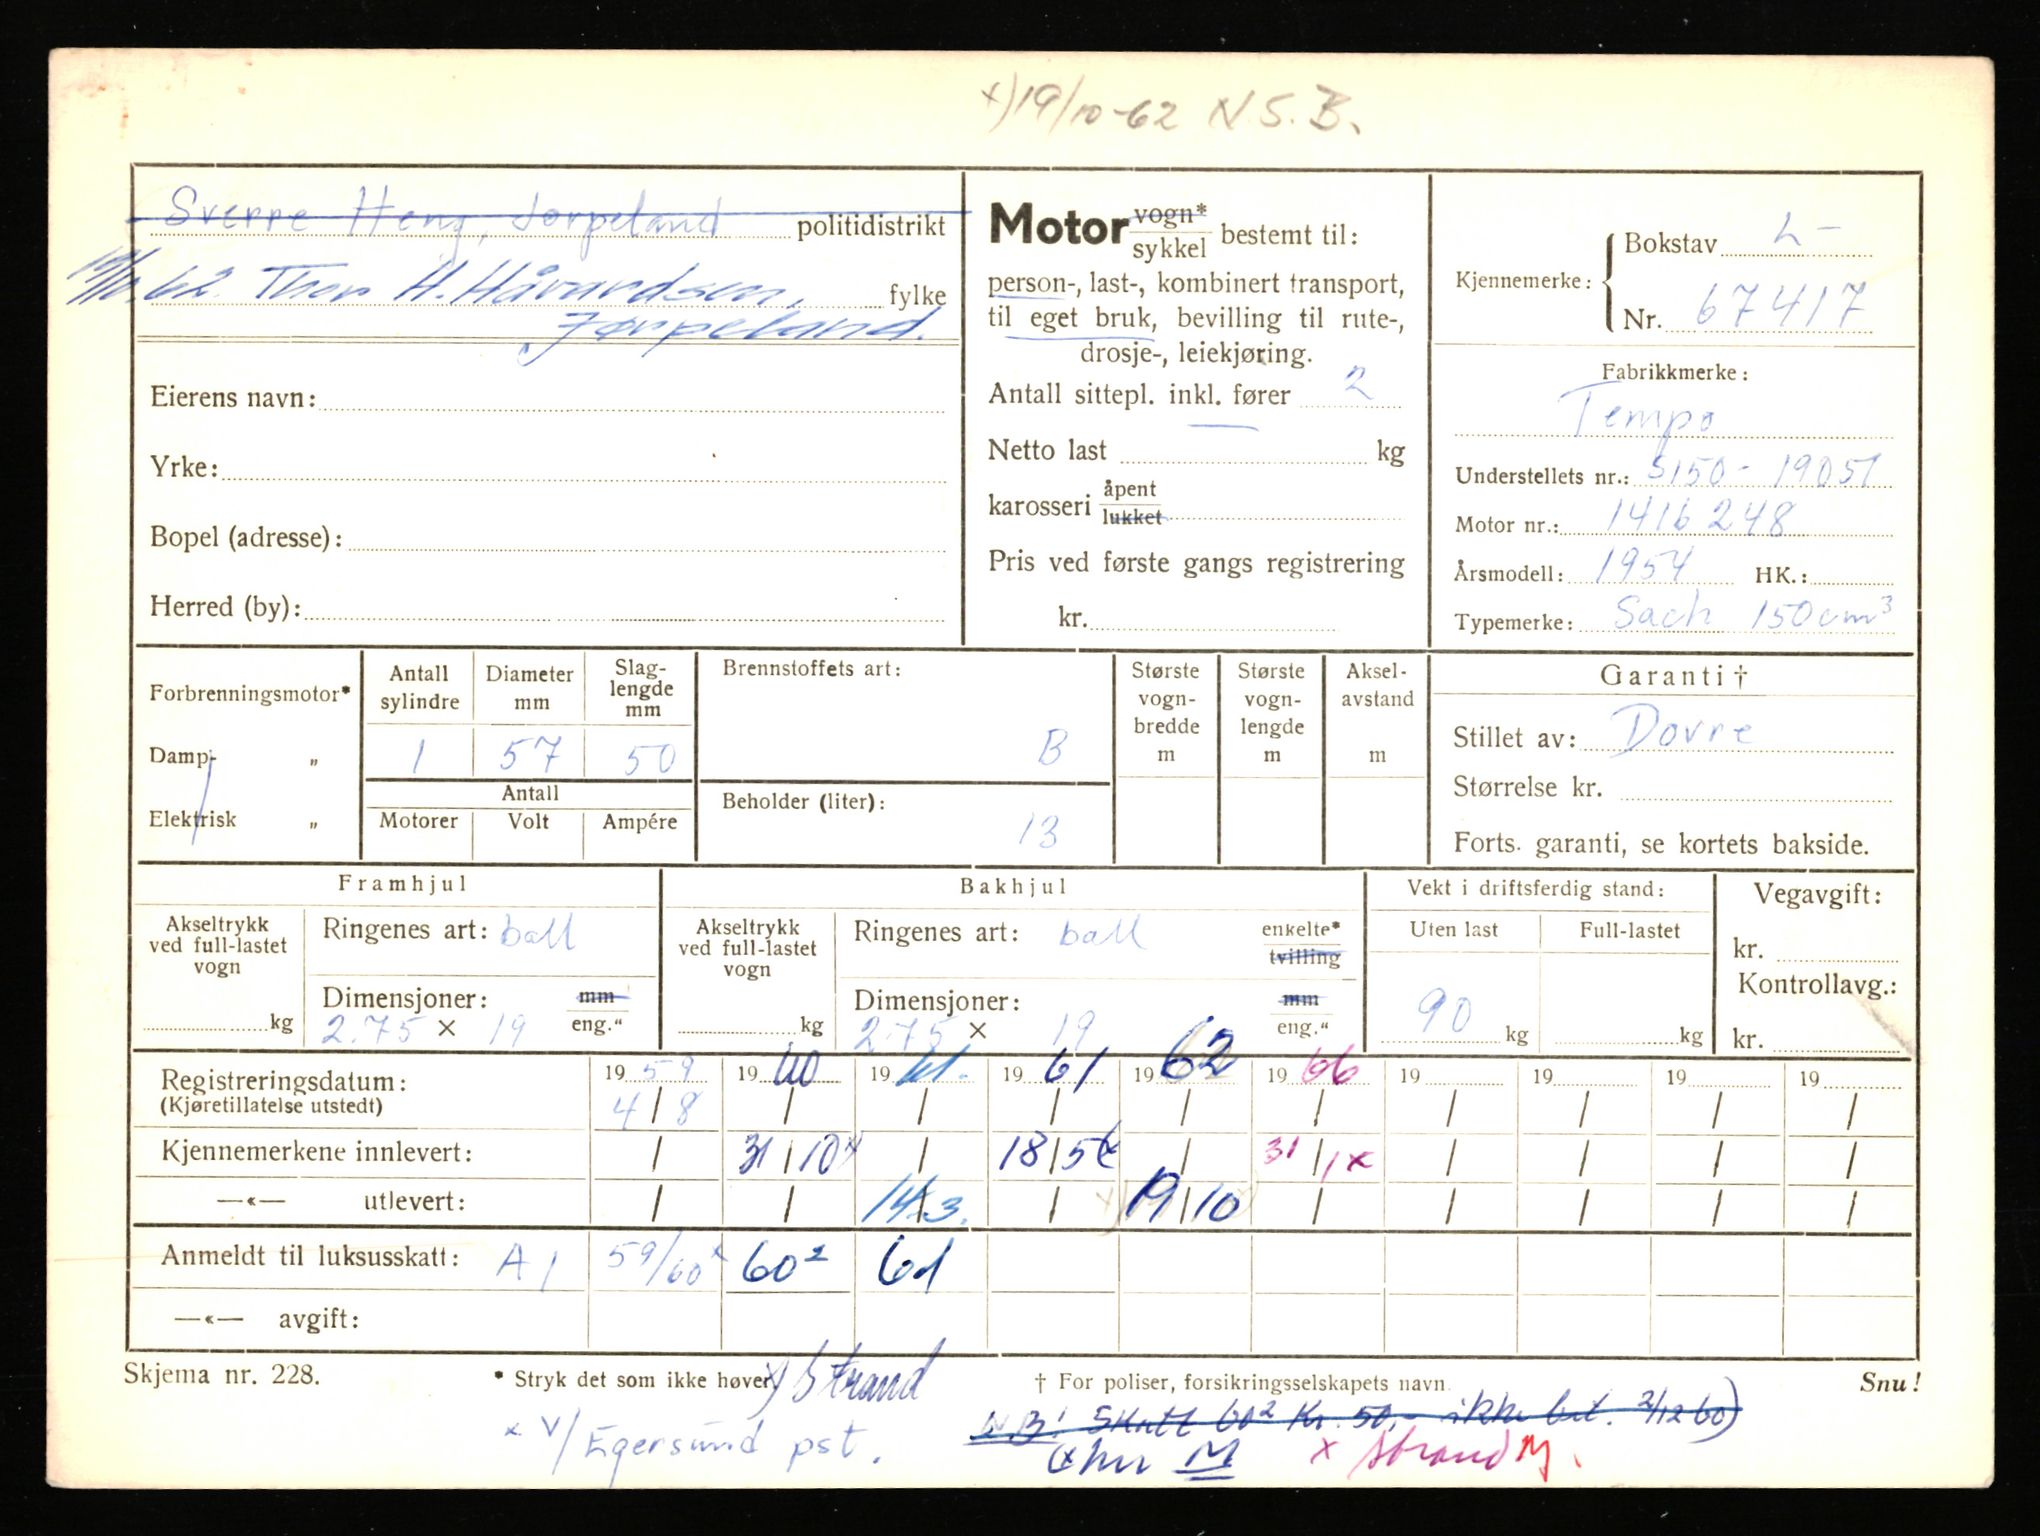 x) 19/10-62 N.S.B.
Sverre Heng, Jørpeland politidistrikt
19/10.62. Thor H. Håvardsen, fylke
Jørpeland.
Eierens navn:
Yrke:
Bopel (adresse):
Herred (by):
Motor vogn* sykkel bestemt til:
person-, last-, kombinert transport,
til eget bruk, bevilling til rute-,
drosje-, leiekjøring.
Antall sittepl. inkl. fører 2
Netto last kg
karosseri åpent lukket
Pris ved første gangs registrering
kr.
Kjennemerke: Bokstav L-
Nr. 67417
Fabrikkmerke:
Tempo
Understellets nr.: S150-19051
Motor nr.: 1416248
Årsmodell: 1954 HK.:
Typemerke: Sach 150cm³
Forbrenningsmotor*
Damp- „
Elektrisk „
Antall sylindre Diameter mm Slag-lengde mm
1 57 50
Antall
Motorer Volt Ampére
Brennstoffets art:
B
Beholder (liter):
13
Største vogn-bredde m
Største vogn-lengde m
Aksel-avstand m
Garanti †
Stillet av: Dovre
Størrelse kr.
Forts. garanti, se kortets bakside.
Framhjul
Akseltrykk ved full-lastet vogn kg
Ringenes art: ball
Dimensjoner: mm
2.75 × 19 eng.“
Bakhjul
Akseltrykk ved full-lastet vogn kg
Ringenes art: ball enkelte* tvilling
Dimensjoner: mm
2.75 × 19 eng.“
Vekt i driftsferdig stand:
Uten last Full-lastet
90 kg kg
Vegavgift:
kr.
Kontrollavg.:
kr.
Registreringsdatum: 19 59 19 60 19 61. 19 61 19 62 19 66 19 19 19 19
(Kjøretillatelse utstedt) 4/8 / / / / / / / / /
Kjennemerkene innlevert: / 31/10 x / 18/5 / 31/1 x / / / /
—«— utlevert: / / 14/3. / x) 19/10 / / / / /
Anmeldt til luksusskatt: A1 59/60 x 60² 61
—«— avgift:
Skjema nr. 228. * Stryk det som ikke høver x) Strand † For poliser, forsikringsselskapets navn. Snu!
N.B! Skatt 60² Kr. 50,- ikke bet. 2/12 60)
x V/ Egersund pst. M x Strand M.